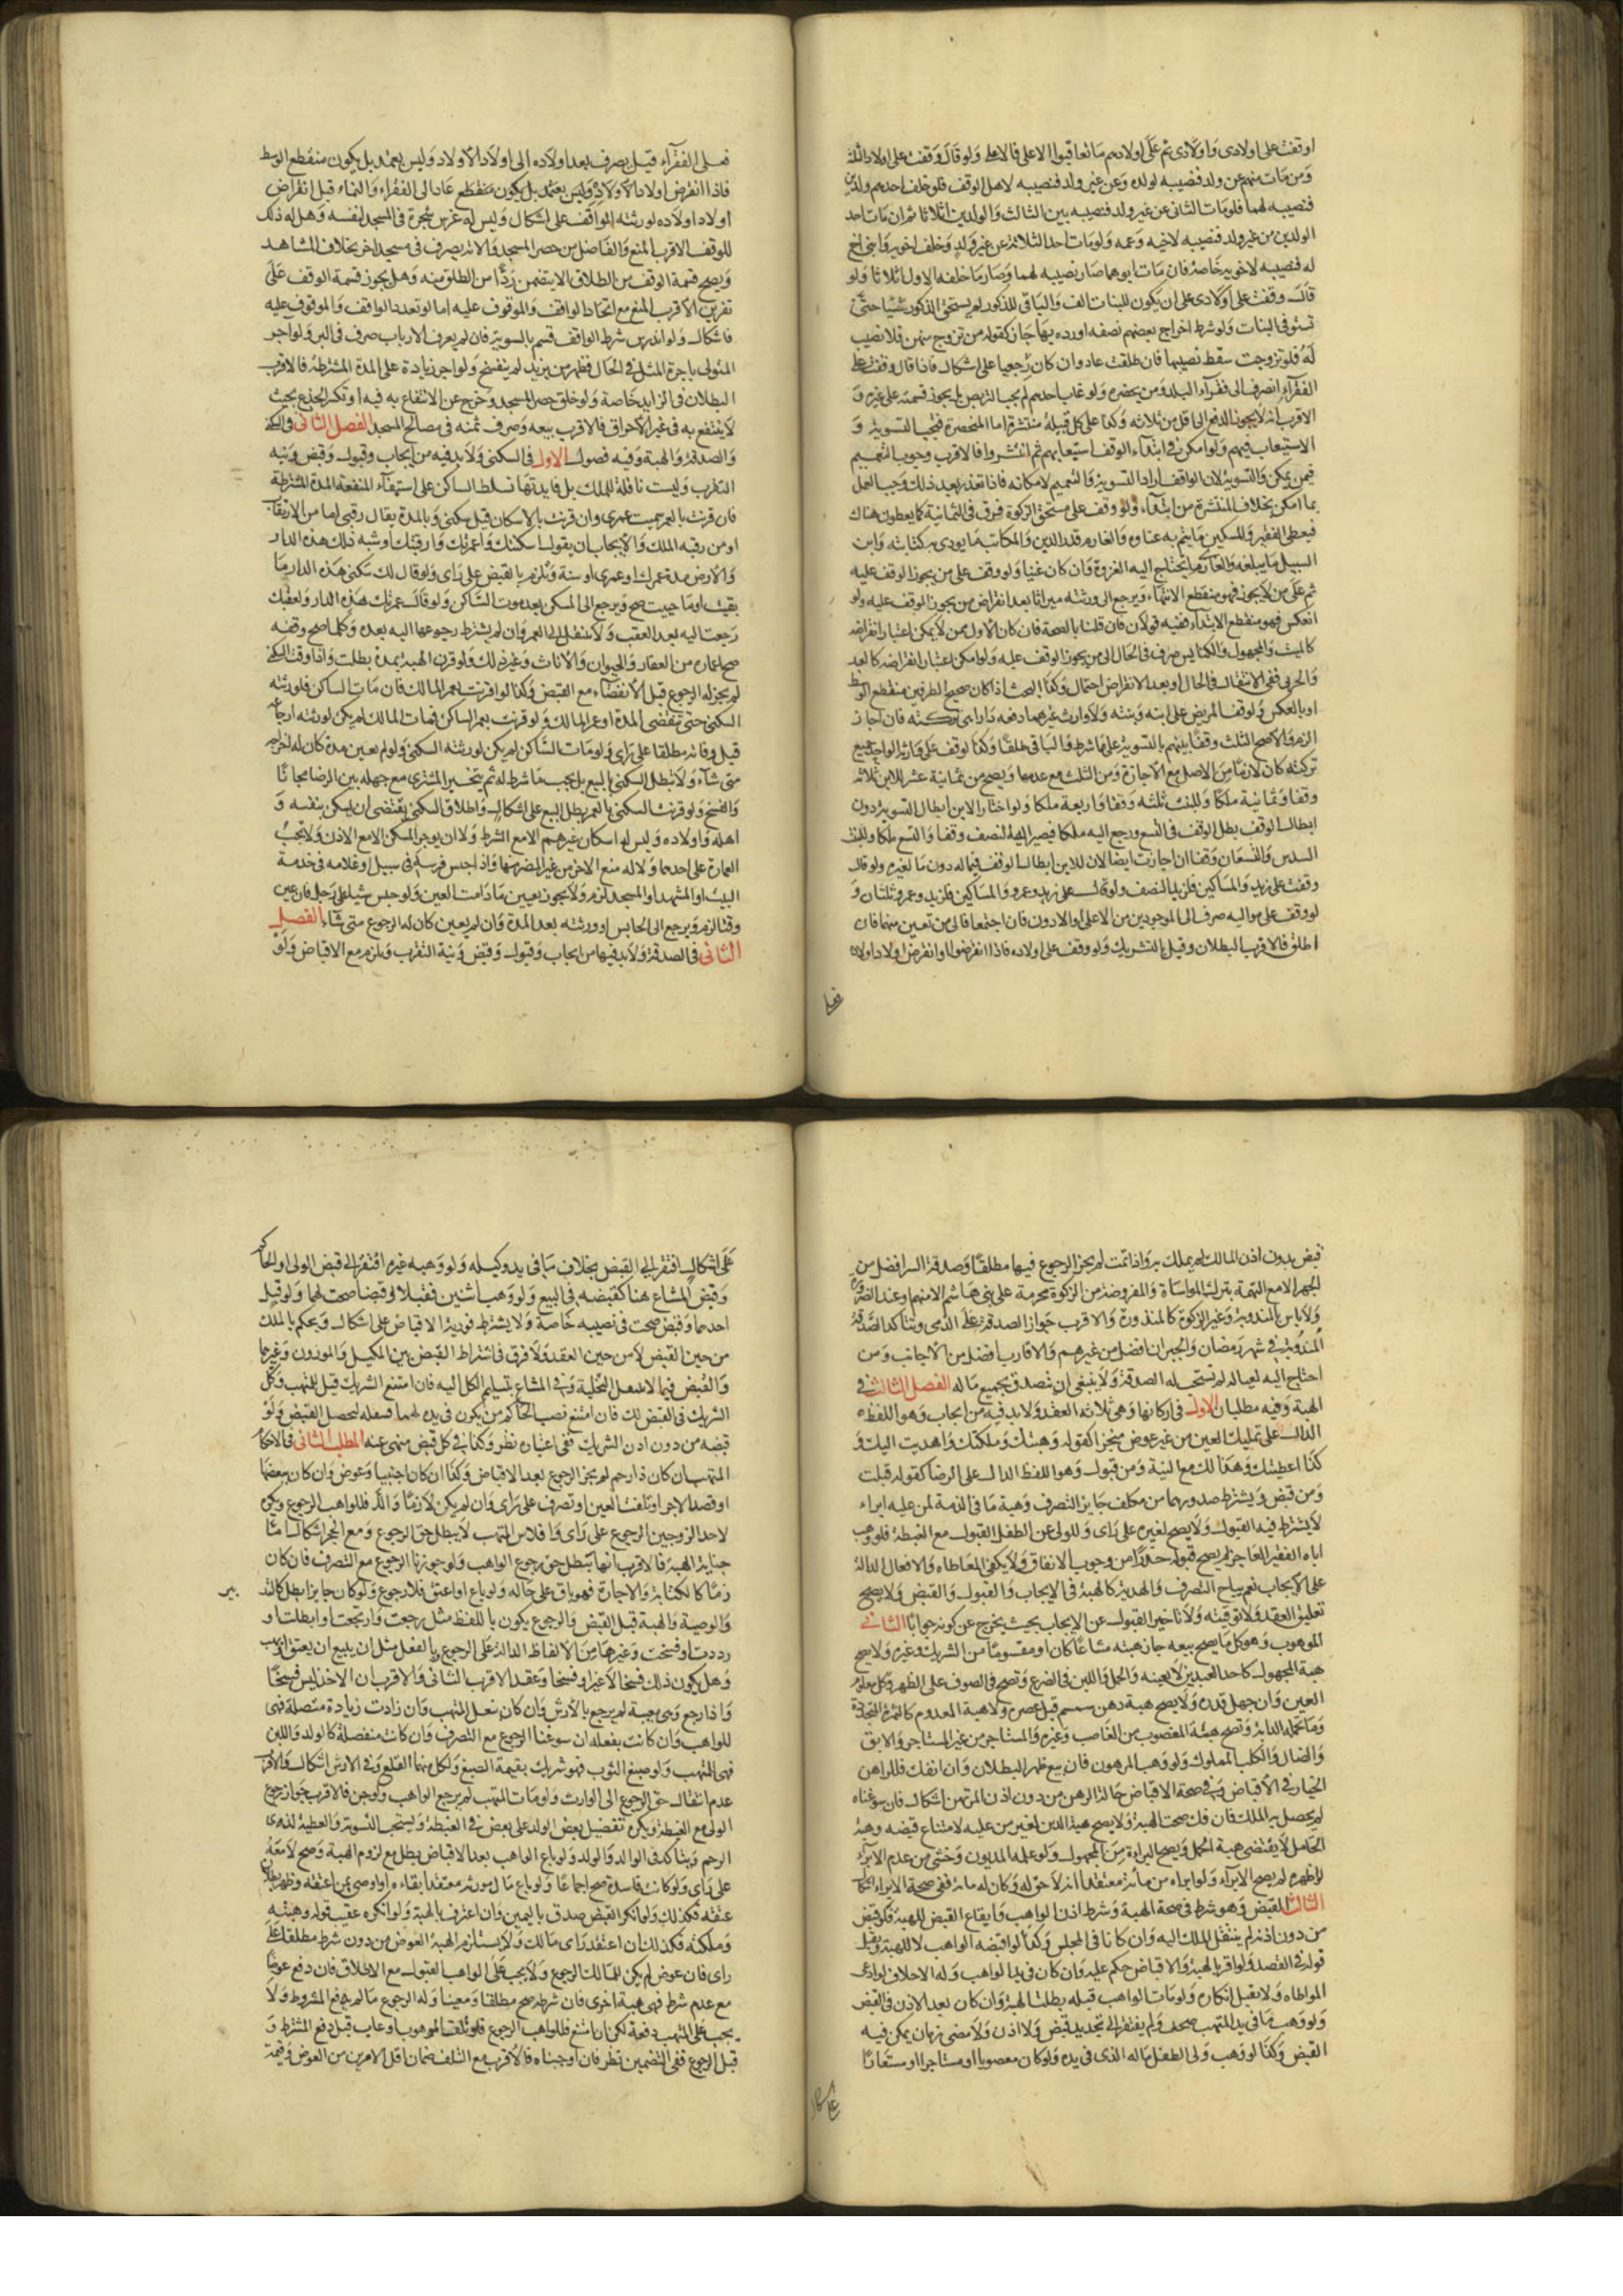 اوقفت على اولادى واولاد اولادى ثم على اولادهم ما تعاقبوا الاعلى فالاعلى ولو قال وقفت على اولاد الثلثة
ومن مات منهم عن ولد فنصيبه لولده وعن غير ولد فنصيبه لاهل الوقف فلو خلف احدهم ولدين
فنصيبه لهما فلو مات الثانى عن غير ولد فنصيبه بين الثالث والولدين اثلاثا ثم ان مات احد
الولدين من غير ولد فنصيبه لاخيه وعمه ولو مات احد الثلاثة عن غير ولد وخلف اخويه وابنى اخ
له فنصيبه لاخويه خاصة فان مات ابوهما صار نصيبه لهما وصار ما خلفه الاول اثلاثا ولو
قال وقفت على اولادى على ان يكون للبنات الف والباقى للذكور لم يستحق الذكور شيئا حتى
تستوفى البنات ولو شرط اخراج بعضهم نصفه اورده بها جاز كقوله من تزوج منهن فلا نصيب
له فلو تزوجت سقط نصيبها فان طلقت عاد وان كان رجعيا على اشكال فاذا قال وقفت على
الفقراء انصرف الى فقراء البلد ومن يحضره ولو غاب احدهم لم يجب التربص بل يجوز قسمته على غيره و
الاقرب انه لا يجوز الدفع الى اقل من ثلاثة وكذا على كل قبيلة منتشرة اما المنحصرة فيجب التسوية و
الاستيعاب فيهم ولو امكن فى ابتداء الوقف استيعابهم ثم انتشروا فالاقرب وجوب التعميم
فيمن يمكن والتسوية لان الواقف اراد التسوية والتعميم لامكانه فاذا تعذر بعد ذلك وجب العمل
بما امكن بخلاف المنتشرة من ابتداء ولو وقف على مستحق الزكوة فرق فى الثمانية كما يعطون هناك
فيعطى الفقير والمسكين ما يتم به غناوه والغارم قدر الدين والمكاتب ما يودى به كتابته وابن
السبيل ما يبلغه والغازى ما يحتاج اليه الغزوة وان كان غنيا ولو وقف على من يجوز الوقف عليه
ثم على من لا يجوز فهو منقطع الانتهاء ويرجع الى ورثته ميراثا بعد انقراض من يجوز الوقف عليه ولو
انعكس فهو منقطع الابتداء ففيه قولان فان قلنا بالصحة فان كان الاول ممن لا يمكن اعتبار انقراضه
كالميت والمجهول والكنايس صرف فى الحال الى من يجوز الوقف عليه ولو امكن اعتبار انقراضه كالعبد
والحربى ففى الانتقال فى الحال او بعد الانقراض احتمال وكذا البحث اذا كان صحيح الطرفين منقطع الوسط
او بالعكس ولو وقف المريض على ابنه وبنته ولا وارث غيرهما دفعه دارا هى تركته فان اجازا
لزم والا صح الثلث وقفا بينهم بالتسوية على ما شرط والباقى طلقا وكذا لو وقف على وارثه الواحد جميع
تركته كان لازما من الاصل مع الاجازة ومن الثلث مع عدمها ويصح من ثمانية عشر للابن ثلاثة
وقفا وثمانية ملكا وللبنت ثلثة وقفا واربعة ملكا ولو اختار الابن ابطال التسوية دون
ابطال الوقف بطل الوقف فى التسع ورجع اليه ملكا فيصير اليه النصف وقفا والتسع ملكا وللبنت
السدس والتسعان وقفا ان اجازت ايضا لان للابن ابطال الوقف فيما له دون ما لغيره ولو قال
وقفت على زيد والمساكين فلزيد النصف ولو قال على زيد وعمرو والمساكين فلزيد وعمرو ثلثان و
لو وقف على مواليه صرف الى الموجودين من الاعلى او الادون فان اجتمعا فالى من تعين منهما فان
اطلق فالاقرب البطلان وقيل بالتشريك ولو وقف على اولاده فاذا انقرضوا وانقرض اولاد اولاده
فعلى
فعلى الفقرآء قيل يصرف بعد اولاده الى اولاد الاولاد وليس بعتمد بل يكون منقطع الوسط
فاذا انقرض اولاد الاولاد وليس بعتمد بل يكون منقطع عاد الى الفقراء والنماء قبل انقراض
اولاد اولاده لورثته الواقف على اشكال وليس له غرس شجرة فى المسجد لنفسه وهل له ذلك
للوقف الاقرب المنع والفاضل من حصر المسجد والاته يصرف فى مسجد اخر بخلاف المشاهد
ويصح قسمة الوقف من الطلق ان لا يتضمن ردا من الطلق منه وهل يجوز قسمة الوقف على
تفريق الاقرب المنع مع اتحاد الواقف والموقوف عليه اما لو تعدد الواقف والموقوف عليه
فاشكال ولو اندرس شرط الواقف قسم بالسوية فان لم يعرف الارباب صرف فى البر ولو اجر
المتولى باجرة المثل فى الحال فظهر من يزيد لم ينفسخ ولو اجر زيادة على المدة المشترطة فالاقرب
البطلان فى الزايد خاصة ولو خلق حصر المسجد وخرج عن الانتفاع به فيه او تكسر الجذع بحيث
لا ينتفع به فى غير الاحراق فالاقرب بيعه وصرف ثمنه فى مصالح المسجد الفصل الثانى فى السكنى
والصدقة والهبة وفيه فصول الاول فى السكنى ولابد فيه من ايجاب وقبول وقبض ونية
التقرب وليست ناقلة للملك بل فايدتها تسلط الساكن على استيفآء المنفعة المدة المشترطة
فان قرنت بالعمر سميت عمرى وان قرنت بالاسكان قيل سكنى وبالمدة يقال رقبى اما من الارتقاب
او من رقبة الملك والايجاب ان يقول اسكنتك واعمرتك وارقبتك او شبه ذلك هذه الدار
والارض مدة عمرك او عمرى او سنة وتلزم بالقبض على راى ولو قال لك سكنى هذه الدار ما
بقيت او ما حييت صح ويرجع الى المسكن بعد موت الساكن ولو قال اعمرتك هذه الدار ولعقبك
رجعت اليه بعد العقب ولا تنتقل الى المعمر وان لم يشترط رجوعها اليه بعده وكلما صح وقفه
صح اعماره من العقار والحيوان والاناث وغير ذلك ولو قرن الهبة بمدة بطلت واذا وقت السكنى
لم يجز له الرجوع قبل الانقضاء مع القبض وكذا لو اقرنت بعمر المالك فان مات الساكن فلورثته
السكنى حتى تنقضى المدة او عمر المالك ولو قرنت بعمر الساكن فمات المالك لم يكن لورثته ازعاجه
قبل وفاته مطلقا على راى ولو مات الساكن لم يكن لورثته السكنى ولو لم يعين مدة كان له اخراجه
متى شآء ولا تبطل السكنى بالبيع بل يجب ما شرط له ثم يتخير المشترى مع جهله بين الرضا مجانا
والفسخ ولو قرنت السكنى بالعمر بطل البيع على اشكال واطلاق السكنى يقتضى ان يسكن بنفسه و
اهله واولاده وليس له اسكان غيرهم الا مع الشرط ولا ان يوجر المسكن الا مع الاذن ولا تجب
العمارة على احدهما ولا له منع الاخر من غير المضر منها واذا حبس فرسه فى سبيل او غلامه فى خدمة
البيت او المشهد او المسجد لزم ولا يجوز تغييره ما دامت العين ولو حبس شيئا على رجل فان عين
وقتا لزم ويرجع الى الحابس او ورثته بعد المدة وان لم يعين كان له الرجوع متى شآء الفصل
الثانى فى الصدقة ولابد فيها من ايجاب وقبول وقبض ونية التقرب ويلزم مع الاقباض ولو
قبض بدون اذن المالك لم يملك به واذا تمت لم يجز الرجوع فيها مطلقا وصدقة السر افضل من
الجهر الا مع التهمة بترك المواساة والمفروضة من الزكوة محرمة على بنى هاشم الا منهم او عند الضرورة
ولا باس بالمندوبة وغير الزكوة كالمنذورة والاقرب جواز الصدقة على الذمى ويتاكد الصدقة
المندوبة فى شهر رمضان والجيران افضل من غيرهم والاقارب افضل من الاجانب ومن
احتاج اليه لعياله لم تستحب له الصدقة ولا ينبغى ان يتصدق بجميع ماله الفصل الثالث فى
الهبة وفيه مطلبان الاول فى اركانها وهى ثلاثة العقد ولابد فيه من ايجاب وهو اللفظ
الدال على تمليك العين من غير عوض منجزا كقوله وهبتك وملكتك واهديت اليك و
كذا اعطيتك وهذا لك مع النية ومن قبول وهو اللفظ الدال على الرضا كقوله قبلت
ومن قبض ويشترط صدورهما من مكلف جايز التصرف وهبة ما فى الذمة لمن عليه ابراء
لا يشترط فيه القبول ولا يصح لغيره على راى وللولى عن الطفل القبول مع الغبطة فلو وهب
اباه الفقير العاجز لم يصح قبوله حذرا من وجوب الانفاق ولا يكفى المعاطاه والافعال الدالة
على الايجاب نعم يباح التصرف والهدية كالهبة فى الايجاب والقبول والقبض ولا يصح
تعليق العقد ولا توقيته ولا تاخير القبول عن الايجاب بحيث يخرج عن كونه جوابا الثانى
الموهوب وهو كل ما يصح بيعه جاز هبته مشاعا كان او مقسوما من الشريك وغيره ولا يصح
هبة المجهول كاحد العبدين لا بعينه والحمل واللبن فى الضرع وتصح فى الصوف على الظهر وكل معلوم
العين وان جهل قدره ولا يصح هبة دهن سمسم قبل عصره ولا هبة المعدوم كالثمرة المتجددة
وما تحمله الدابة وتصح هبة المغصوب من الغاصب وغيره والمستاجر من غير المستاجر والابق
والضال والكلب المملوك ولو وهب المرهون فان بيع ظهر البطلان وان انفك فللراهن
الخيار فى الاقباض وفى صحة الاقباض حالة الرهن من دون اذن المرتهن اشكال فان سوغناه
لم يحصل به الملك فان فك صحت الهبة ولا يصح هبة الدين لغير من عليه لامتناع قبضه وهبة
الحامل لا يقتضى هبة الحمل ويصح البراءة من المجهول ولو علمه المديون وخشى من عدم الابرآء
لو اظهره لم يصح الابرآء ولو ابراه من مائة معتقدا انه لا حق له وكان له مائة ففى صحة الابراء اشكال
الثالث القبض وهو شرط فى صحة الهبة وشرطه اذن الواهب وايقاع القبض للهبة فلو قبض
من دون اذنه لم ينتقل الملك اليه وان كانا فى المجلس وكذا لو اقبضه الواهب لا للهبة ويقبل
قوله فى القصد ولو اقر بالهبة والاقباض حكم عليه وان كان فى يد الواهب وله الاحلاف لو ادعى
المواطاه ولا يقبل انكاره ولو مات الواهب قبله بطلت الهبة وان كان بعد الاذن فى القبض
ولو وهب ما فى يد المتهب صح ولم يفتقر الى تجديد قبض ولا اذن ولا مضى زمان يمكن فيه
القبض وكذا لو وهب ولى الطفل ماله الذى فى يده ولو كان مغصوبا او مستاجرا او مستعارا
على اشكال
على اشكال افتقر الى القبض بخلاف ما فى يد وكيله ولو وهبه غيره افتقر الى قبض الولى او الحاكم
وقبض المشاع هنا كقبضه فى البيع ولو وهب اثنين فقبلا وقبضا صحت لهما ولو قبل
احدهما وقبض صحت فى نصيبه خاصة ولا يشترط فورية الاقباض على اشكال ويحكم بالملك
من حين القبض لا من حين العقد ولا فرق فى اشتراط القبض بين المكيل والموزون وغيرهما
والقبض فيما لا ينتقل التخلية وفى المشاع بتسليم الكل اليه فان امتنع الشريك قيل للمتهب وكل
الشريك فى القبض لك فان امتنع نصب الحاكم من يكون فى يده لهما فينقله ليحصل القبض ولو
قبضه من دون اذن الشريك ففى اعتباره نظر وكذا فى كل قبض منهى عنه المطلب الثانى فى الاحكام
المتهب ان كان ذا رحم لم يجز الرجوع بعد الاقباض وكذا ان كان اجنبيا وعوض وان كان ببعضها
او قصد الاجر او تلفت العين او تصرف على راى وان لم يكن لازما والا فللواهب الرجوع ويكره
لاحد الزوجين الرجوع على راى وافلاس المتهب لا يبطل حق الرجوع ومع الحجر اشكال اما
جناية الهبة فالاقرب انها تبطل حق رجوع الواهب ولو جوزنا الرجوع مع التصرف فان كان
لازما كالكتابة والاجارة فهو باق على حاله ولو باع او اعتق فلا رجوع ولو كان جايزا بطل كالتدبير
بير
والوصية والهبة قبل القبض والرجوع يكون باللفظ مثل رجعت وارتجعت او ابطلت او
رددت او فسخت وغيرها من الالفاظ الدالة على الرجوع وبالفعل مثل ان يبيع ان يعتق او يهب
وهل يكون ذلك فسخا لا غير او فسخا وعقدا الاقرب الثانى والاقرب ان الاخذ ليس فسخا
واذا رجع وهى معيبة لم يرجع بالارش وان كان بفعل المتهب وان زادت زيادة متصلة فهى
للواهب وان كانت بفعله ان سوغنا الرجوع مع التصرف وان كانت منفصلة كالولد واللبن
فهى للمتهب ولو صبغ الثوب فهو شريك بقيمة الصبغ ولكل منهما القلع وفى الارش اشكال والاقرب
عدم انتقال حق الرجوع الى الوارث ولو مات المتهب لم يرجع الواهب ولو جن فالاقرب جواز رجوع
الولى مع الغبطة ويكره تفضيل بعض الولد على بعض فى العطية ويستحب التسوية والعطية لذوى
الرحم ويتاكد فى الوالد والولد ولو باع الواهب بعد الاقباض بطل مع لزوم الهبة وصح لا معه
على راى ولو كانت فاسدة صح اجماعا ولو باع مال مورثه معتقدا بقاءه او اوصى بمن اعتقه وظهر بطلان
عتقه فكذلك ولو انكر القبض صدق باليمين وان اعترف بالهبة ولو انكره عقيب قوله وهبته
وملكته فكذلك ان اعتقد راى مالك ولا يستلزم الهبة العوض من دون شرط مطلقا على
راى فان عوض لم يكن للمالك الرجوع ولا يجب على الواهب القبول مع الاطلاق فان دفع عوضا
مع عدم شرط فهى هبة اخرى فان شرطه صح مطلقا ومعينا وله الرجوع ما لم يدفع المشروط ولا
يجب على المتهب دفعه لكن ان امتنع فللواهب الرجوع فلو تلفت الموهوب او عاب قبل دفع المشترط و
قبل الرجوع ففى التضمين نظر فان اوجبناه فالاقرب مع التلف ضمان اقل الامرين من العوض وقيمة